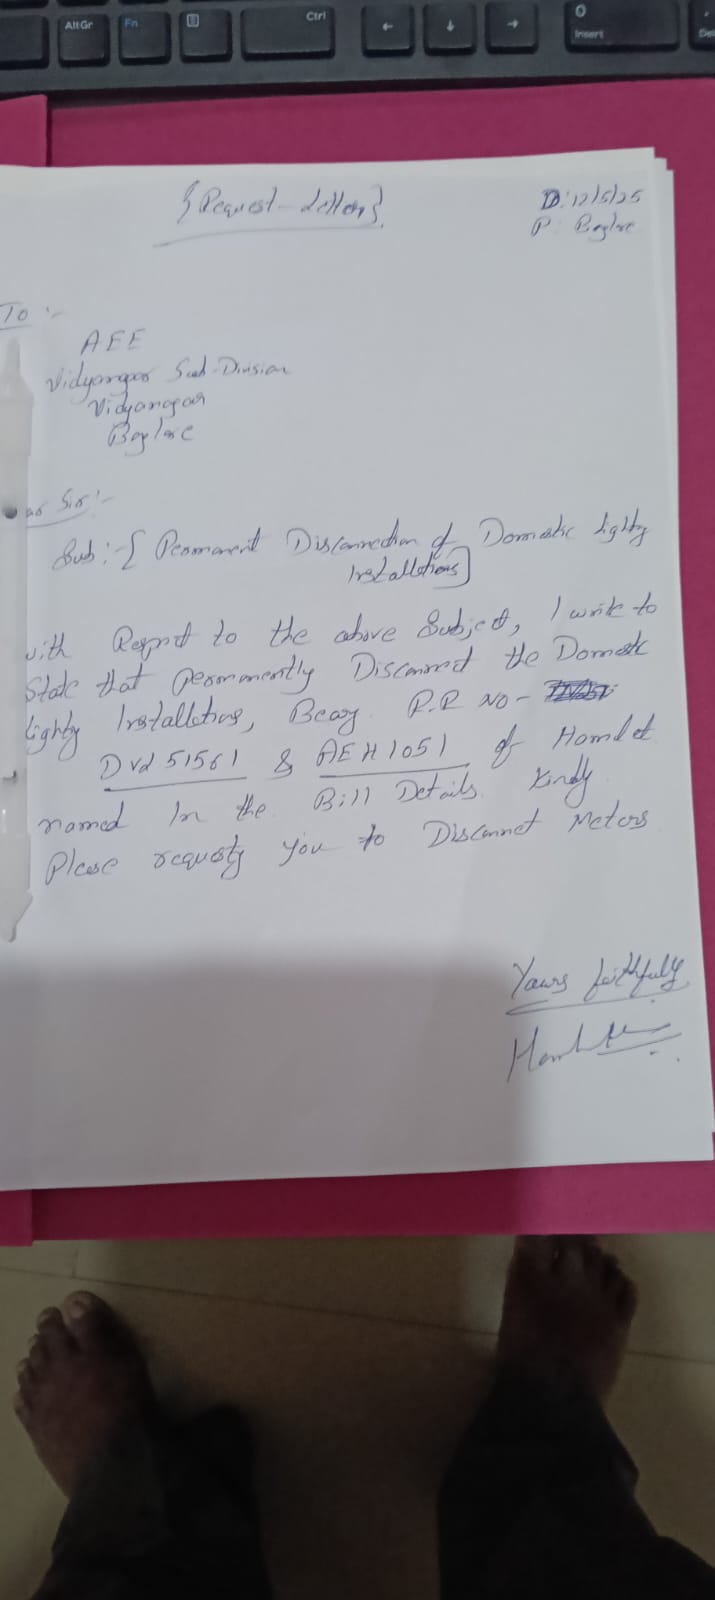 AltGr Fn Ctrl ← ↓ → 0 Insert
{Request-Letter}
D: 12/5/25
P: Baglore
To :-
AEE
Vidyanagar Sub-Division
Vidyanagar
Baglore
Sir :-
Sub :- [Permanent Disconnection of Domestic lighty
Installations]
with Respect to the above Subject, I write to
State that permanently Disconnect the Domestic
lighty Installations, Bearg. R.R NO-
DVD 51561 & AEH 1051 of Hamlet
named In the Bill Details. Kindly
Please requesty you to Disconnet Meters
Yours faithfully